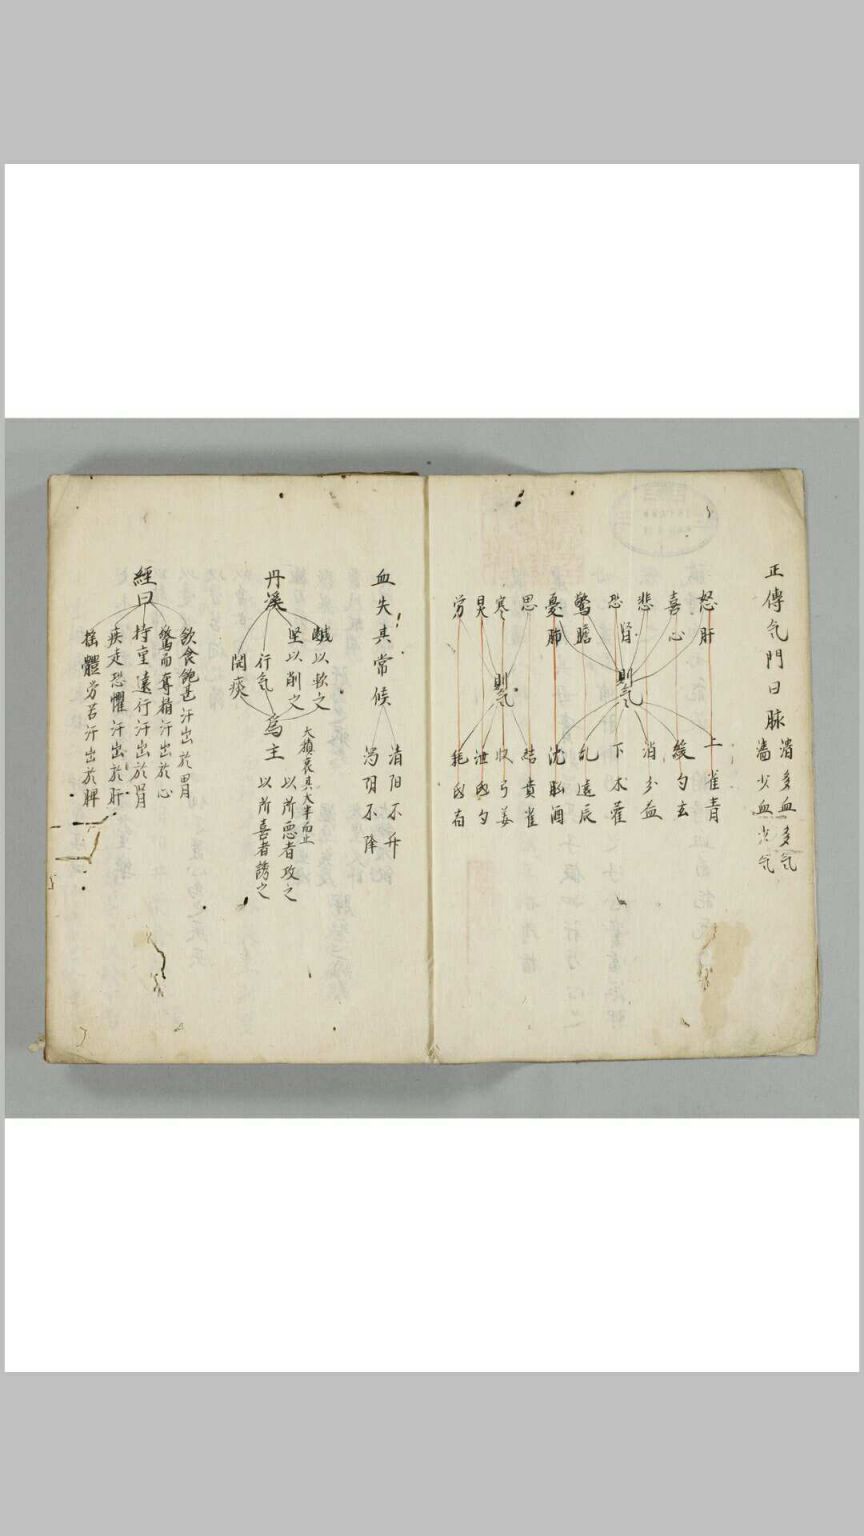 正傳気門曰脉
滑多血多気
濇少血少気
怒肝
喜心
悲
恐腎
驚膽
憂肺
思
寒
炅
労
則気
則気
上雀青
緩勺玄
消分益
下木雚
乱遠辰
沈
結貴雀
収弓姜
泄凶勺
耗凶
血失其常候
清阳不升
濁阴不降
丹溪
鹹以軟之
坚以削之
行気
開痰
為主
大積衰其大半而止
以所悪者攻之
以所喜者誘之
經曰
飲食飽甚汗出於胃
驚而奪精汗出於心
持重遠行汗出於腎
疾走恐懼汗出於肝
揺體労苦汗出於脾